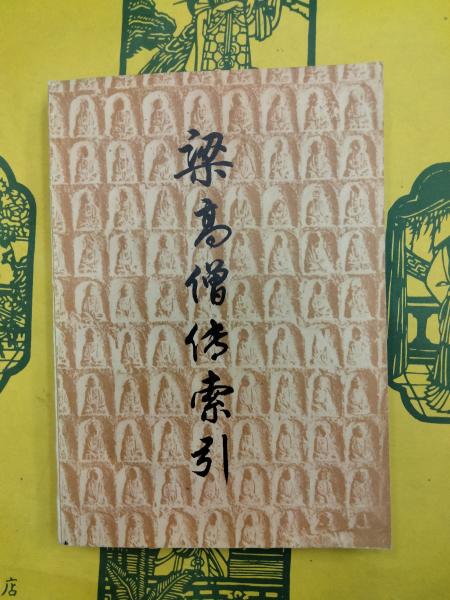 梁高僧传索引
店